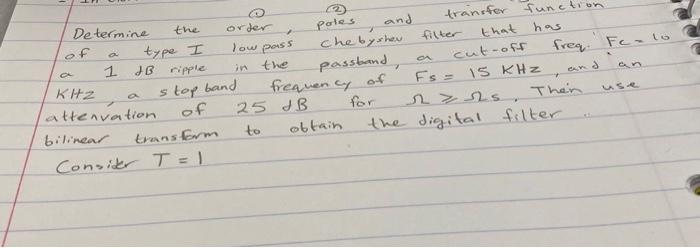 ① ②
Determine the order, poles, and transfer function
of a type I low pass chebyshev filter that has
a 1 dB ripple in the passband, a cut-off freq. Fc = 10
KHz, a stop band frequency of Fs = 15 KHz, and an
attenvation of 25 dB for Ω ≥ Ωs. Then use
bilinear transform to obtain the digital filter
Consider T = 1